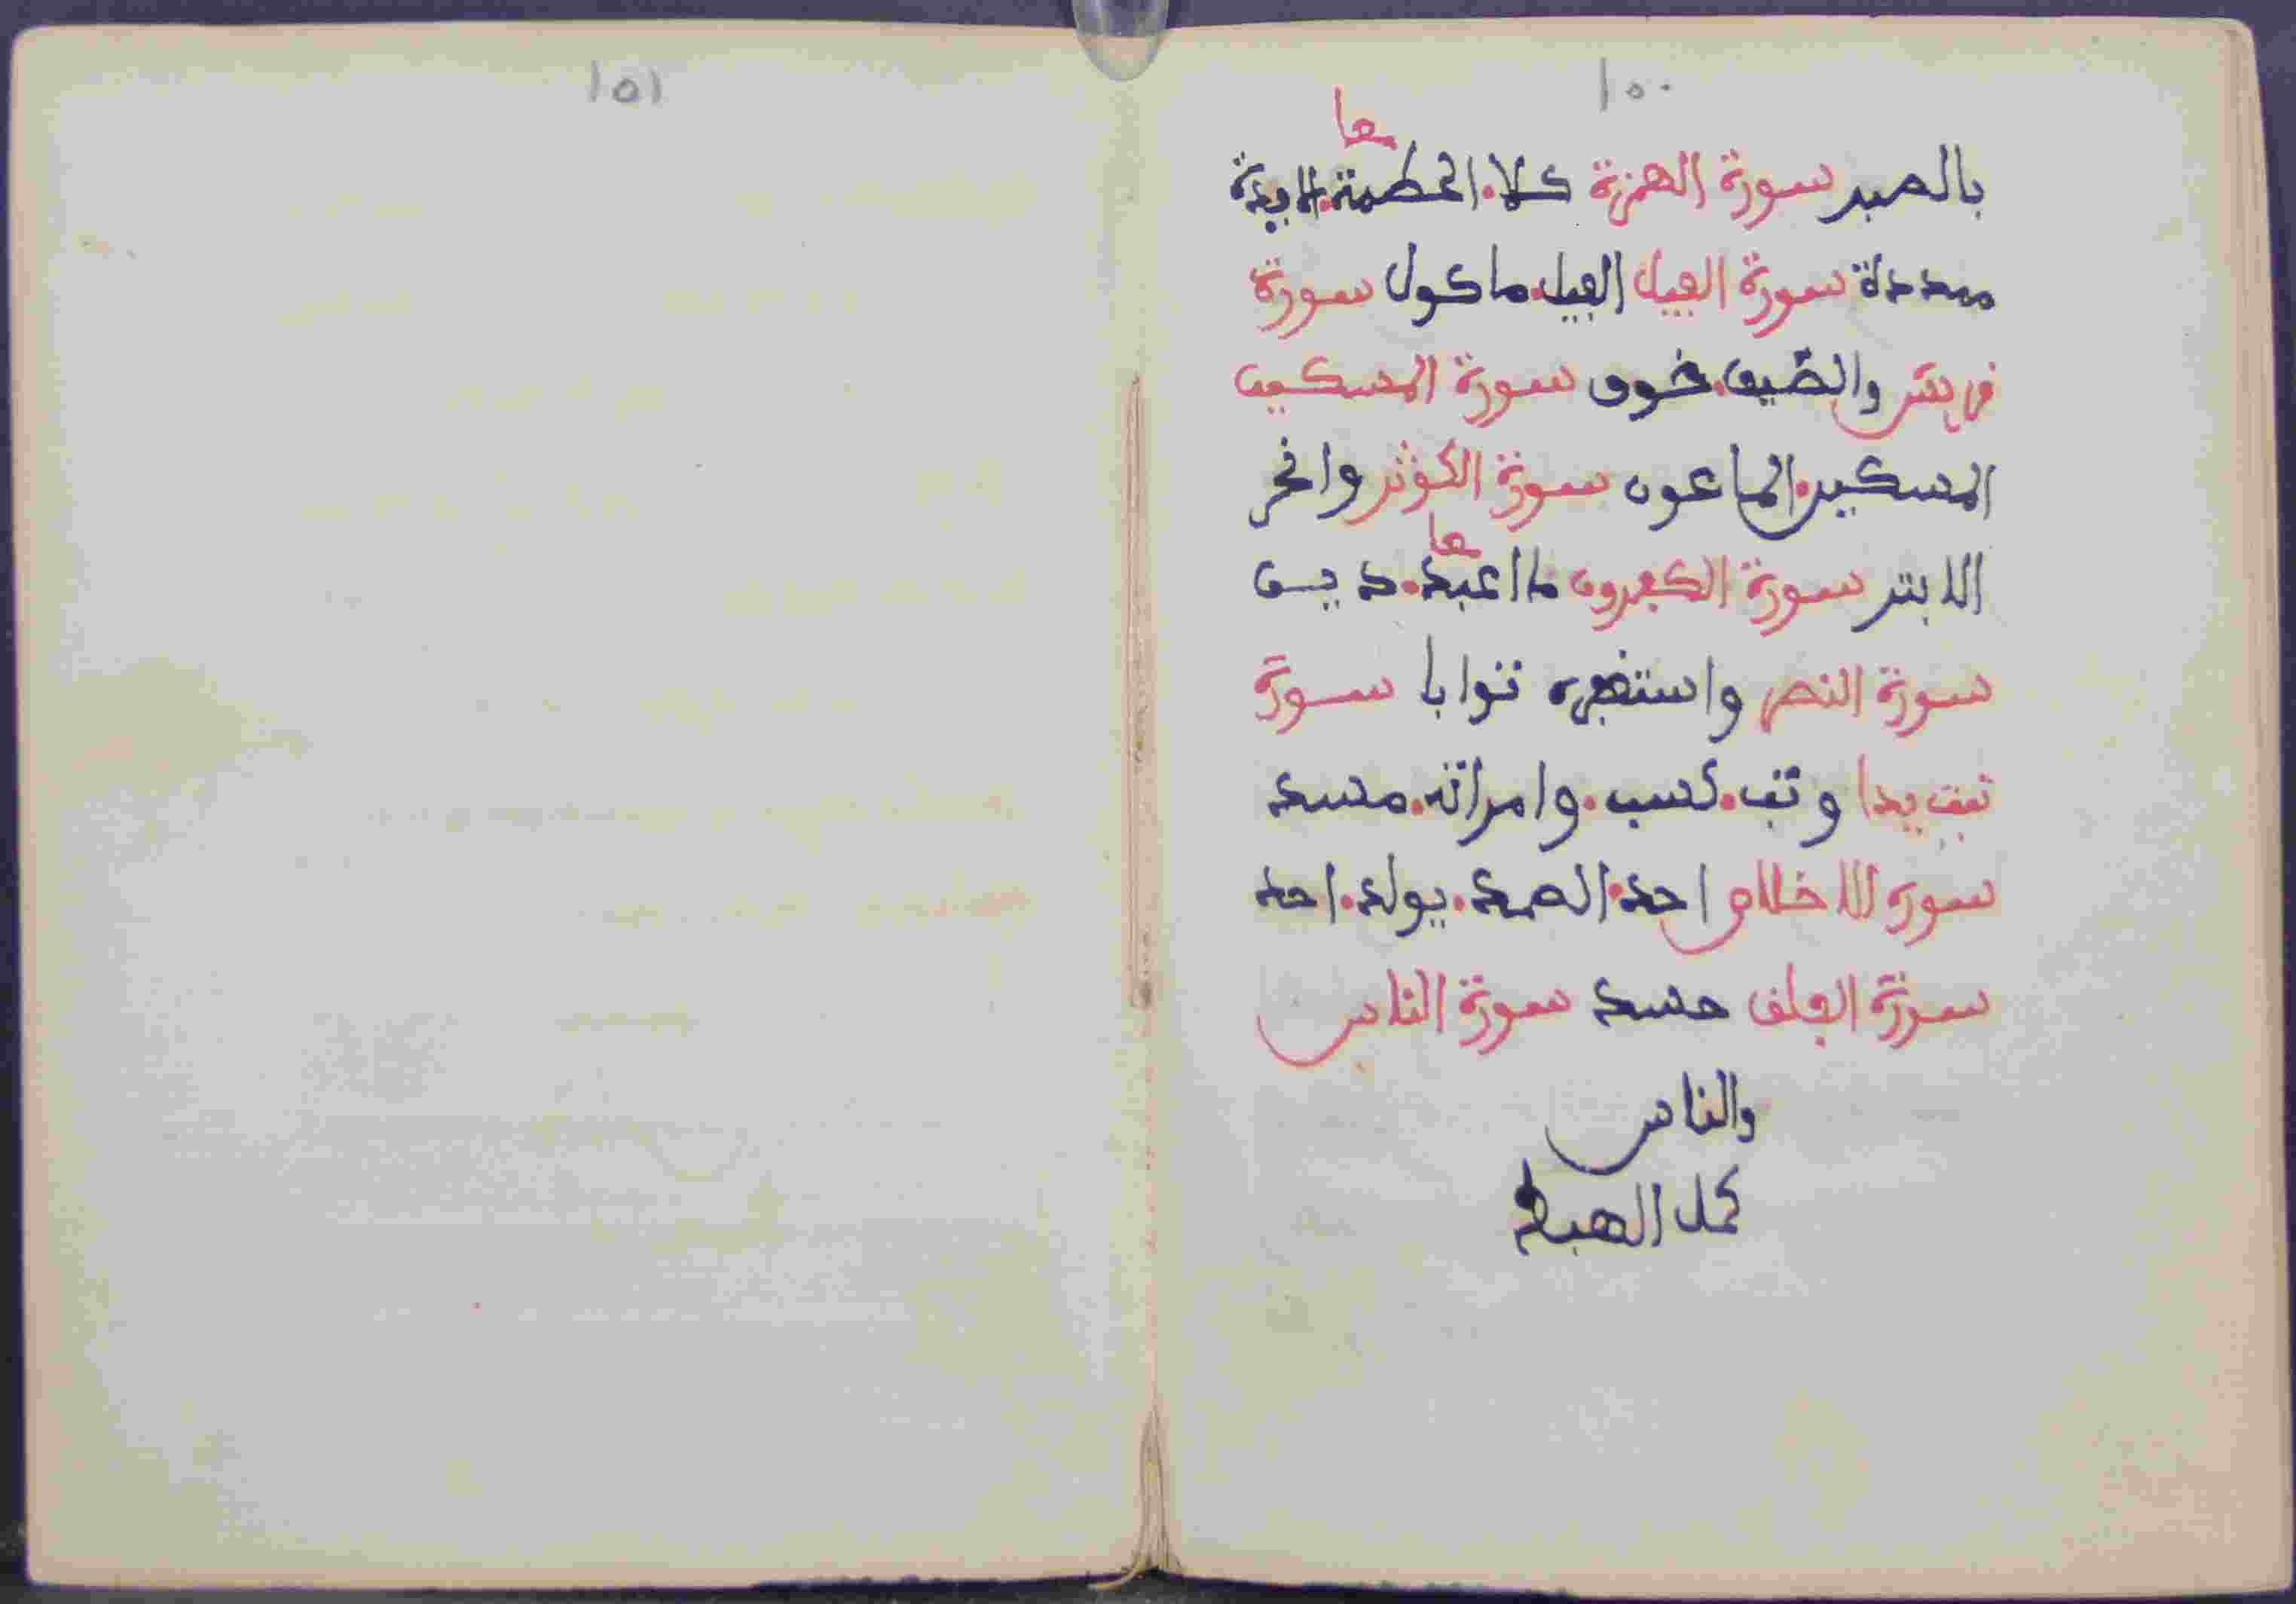 ١٥٠
معا
بالصبر سورة الهمزة كلا. الحطمة. الافدة
ممددة سورة الفيل الفيل. ماكول سورة
قريش والصيف. خوف سورة المسكين
المسكين. الماعون سورة الكوثر وانحر
معا
الابتر سورة الكفرون ما اعبد. دين
سورة النصر واستغفره توابا سورة
تبت يدا وتب. كسب. وامراته. مسد
سورة الاخلاص احد. الصمد. يولد. احد
سورة الفلق حسد سورة الناس
والناس
كمل الهبط
١٥١